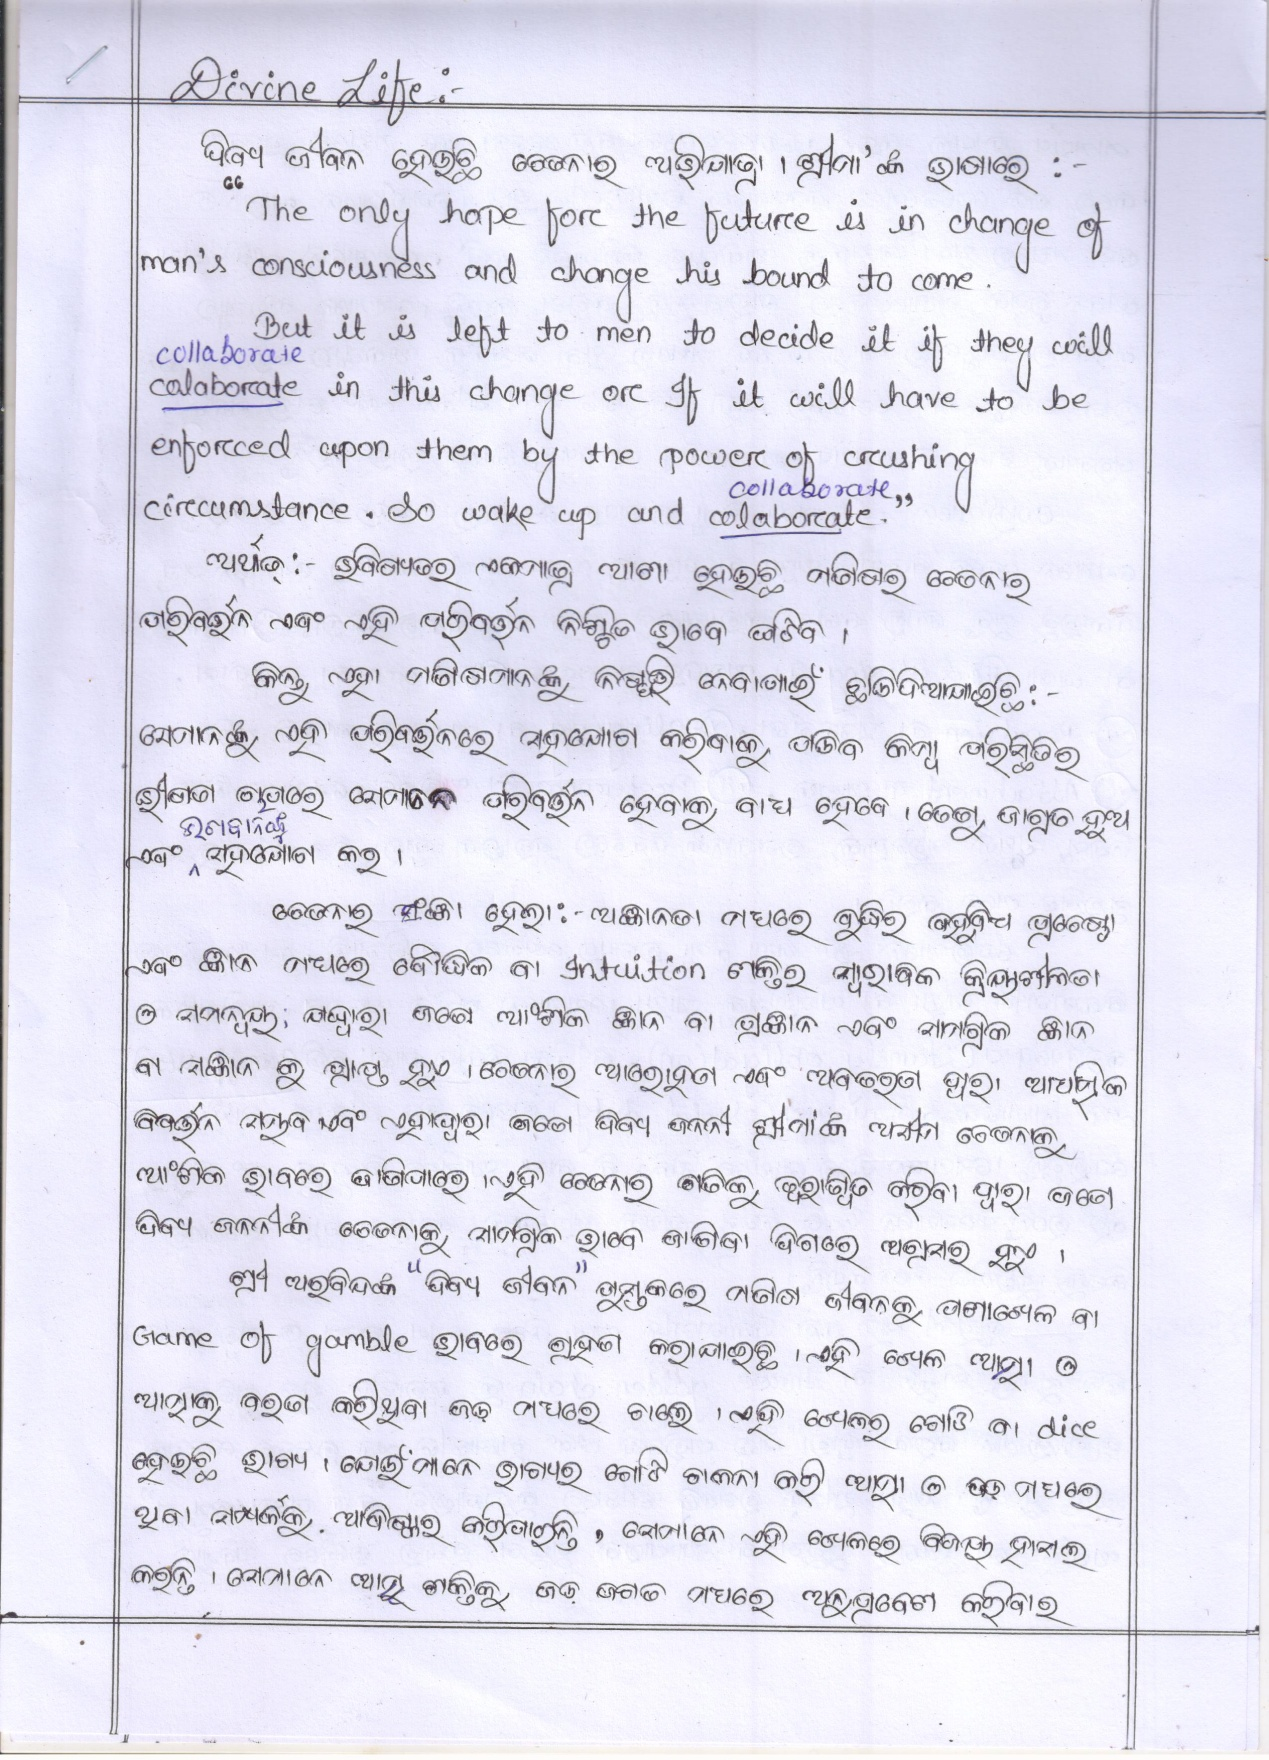 Divine Life:-
ଦିବ୍ୟ ଜୀବନ ହେଉଛି ଚେତନାର ଅଭିଯାତ୍ରା । ଶ୍ରୀମା'ଙ୍କ ଭାଷାରେ :-
"The only hope for the future is in change of
man's consciousness and change his bound to come.
But it is left to men to decide it if they will
collaborate
colaborate in this change or If it will have to be
enforced upon them by the power of crushing
collaborate"
circumstance. So wake up and colaborate.
ଅର୍ଥାତ୍ :- ଭବିଷ୍ୟତର ଏକମାତ୍ର ଆଶା ହେଉଛି ମଣିଷର ଚେତନାର
ପରିବର୍ତ୍ତନ ଏବଂ ଏହି ପରିବର୍ତ୍ତନ ନିଶ୍ଚିତ ଭାବେ ଘଟିବ ।
କିନ୍ତୁ ଏହା ମଣିଷମାନଙ୍କୁ ନିଷ୍ପତ୍ତି ନେବାପାଇଁ ଛାଡିଦିଆଯାଇଛି :-
ସେମାନଙ୍କୁ ଏହି ପରିବର୍ତ୍ତନରେ ସହଯୋଗ କରିବାକୁ ପଡିବ କିମ୍ବା ପରିସ୍ଥିତିର
ଭୀଷଣ ଚାପରେ ସେମାନେ ପରିବର୍ତ୍ତନ ହେବାକୁ ବାଧ୍ୟ ହେବେ । ତେଣୁ ଜାଗ୍ରତ ହୁଅ
ଭଗବାନଙ୍କୁ
ଏବଂ ସହଯୋଗ କର ।
ଚେତନାର ସଂଜ୍ଞା ହେଲା :- ଅଜ୍ଞାନତା ମଧ୍ୟରେ ବୁଦ୍ଧିର ବହୁବିଧ ପ୍ରଚେଷ୍ଟା
ଏବଂ ଜ୍ଞାନ ମଧ୍ୟରେ ବୌଦ୍ଧିକ ବା Intuition ଶକ୍ତିର ସ୍ୱାଭାବିକ କ୍ରିୟାଶୀଳତା
ଓ ସମନ୍ୱୟ; ଯଦ୍ୱାରା ଜଣେ ଆଂଶିକ ଜ୍ଞାନ ବା ପ୍ରଜ୍ଞାନ ଏବଂ ସାମଗ୍ରିକ ଜ୍ଞାନ
ବା ସଜ୍ଞାନ କୁ ପ୍ରାପ୍ତ ହୁଏ । ଚେତନାର ଆରୋହଣ ଏବଂ ଅବତରଣ ଦ୍ୱାରା ଆଧ୍ୟାତ୍ମିକ
ବିବର୍ତ୍ତନ ସମ୍ଭବ ଏବଂ ଏହାଦ୍ୱାରା ଜଣେ ଦିବ୍ୟ ଜନନୀ ଶ୍ରୀମାଙ୍କ ଅସୀମ ଚେତନାକୁ
ଆଂଶିକ ଭାବରେ ଜାଣିପାରେ । ଏହି ଚେତନାର ଗତିକୁ ତ୍ୱରାନ୍ୱିତ କରିବା ଦ୍ୱାରା ଜଣେ
ଦିବ୍ୟ ଜନନୀଙ୍କ ଚେତନାକୁ ସାମଗ୍ରିକ ଭାବେ ଜାଣିବା ଦିଗରେ ଅଗ୍ରସର ହୁଏ ।
ଶ୍ରୀ ଅରବିନ୍ଦଙ୍କ "ଦିବ୍ୟ ଜୀବନ" ପୁସ୍ତକରେ ମଣିଷ ଜୀବନକୁ ପଶାଖେଳ ବା
Game of gamble ଭାବରେ ଗ୍ରହଣ କରାଯାଇଛି । ଏହି ଖେଳ ଆତ୍ମା ଓ
ଆତ୍ମାକୁ ବରଣ କରିଥିବା ଜଡ଼ ମଧ୍ୟରେ ଚାଲେ । ଏହି ଖେଳର ଗୋଟି ବା dice
ହେଉଛି ଭାଗ୍ୟ । ଯେଉଁମାନେ ଭାଗ୍ୟର ଗୋଟି ଚାଳନା କରି ଆତ୍ମା ଓ ଜଡ଼ ମଧ୍ୟରେ
ଥିବା ସମ୍ପର୍କକୁ ଆବିଷ୍କାର କରିପାରନ୍ତି, ସେମାନେ ଏହି ଖେଳରେ ବିଜୟ ହାସଲ
କରନ୍ତି । ସେମାନେ ଆତ୍ମ ଶକ୍ତିକୁ ଜଡ଼ ଜଗତ ମଧ୍ୟରେ ଅନୁପ୍ରବେଶ କରିବାର